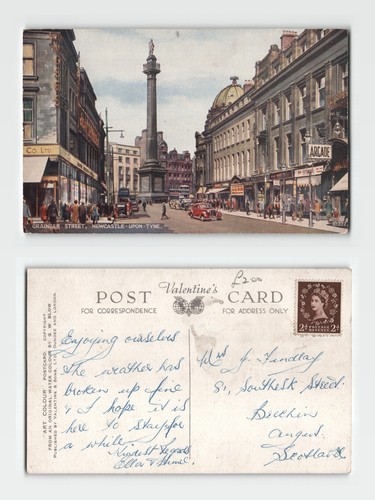 Co Ltd
ARCADE
GRAINGER STREET, NEWCASTLE-UPON-TYNE.
£2.00
POST Valentine's CARD
FOR CORRESPONDENCE FOR ADDRESS ONLY
"ART COLOUR" POSTCARD. COPYRIGHT.
FROM AN ORIGINAL WATER COLOUR BY
Enjoying ourselves
The weather has
broken up fine
& I hope it is
here to stay for
a while
Kindest Regards
Mrs J. Findlay
81, Southesk Street
Brechin
Angus
Scotland
2d 2d